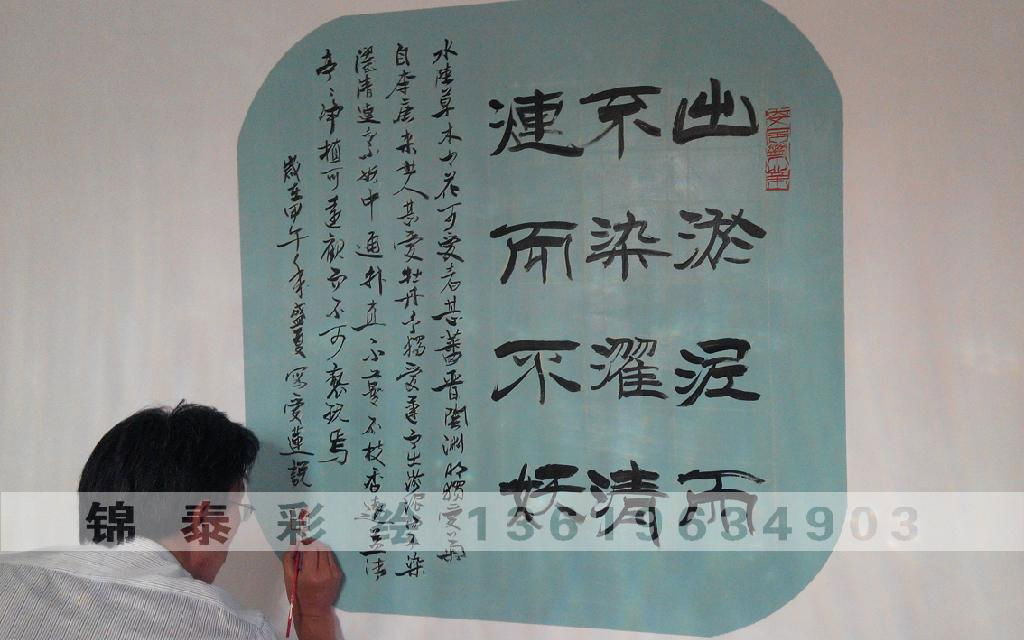 出淤泥而
不染濯清
漣而不妖
水陸草木之花可愛者甚蕃晋陶渊明獨愛菊
自李唐来世人甚愛牡丹予獨愛蓮之出淤泥而不染
濯清漣而不妖中通外直不蔓不枝香遠益清
亭亭净植可遠觀而不可褻玩焉
歲在甲午年盛夏 愛蓮説
锦泰彩绘 13619634903